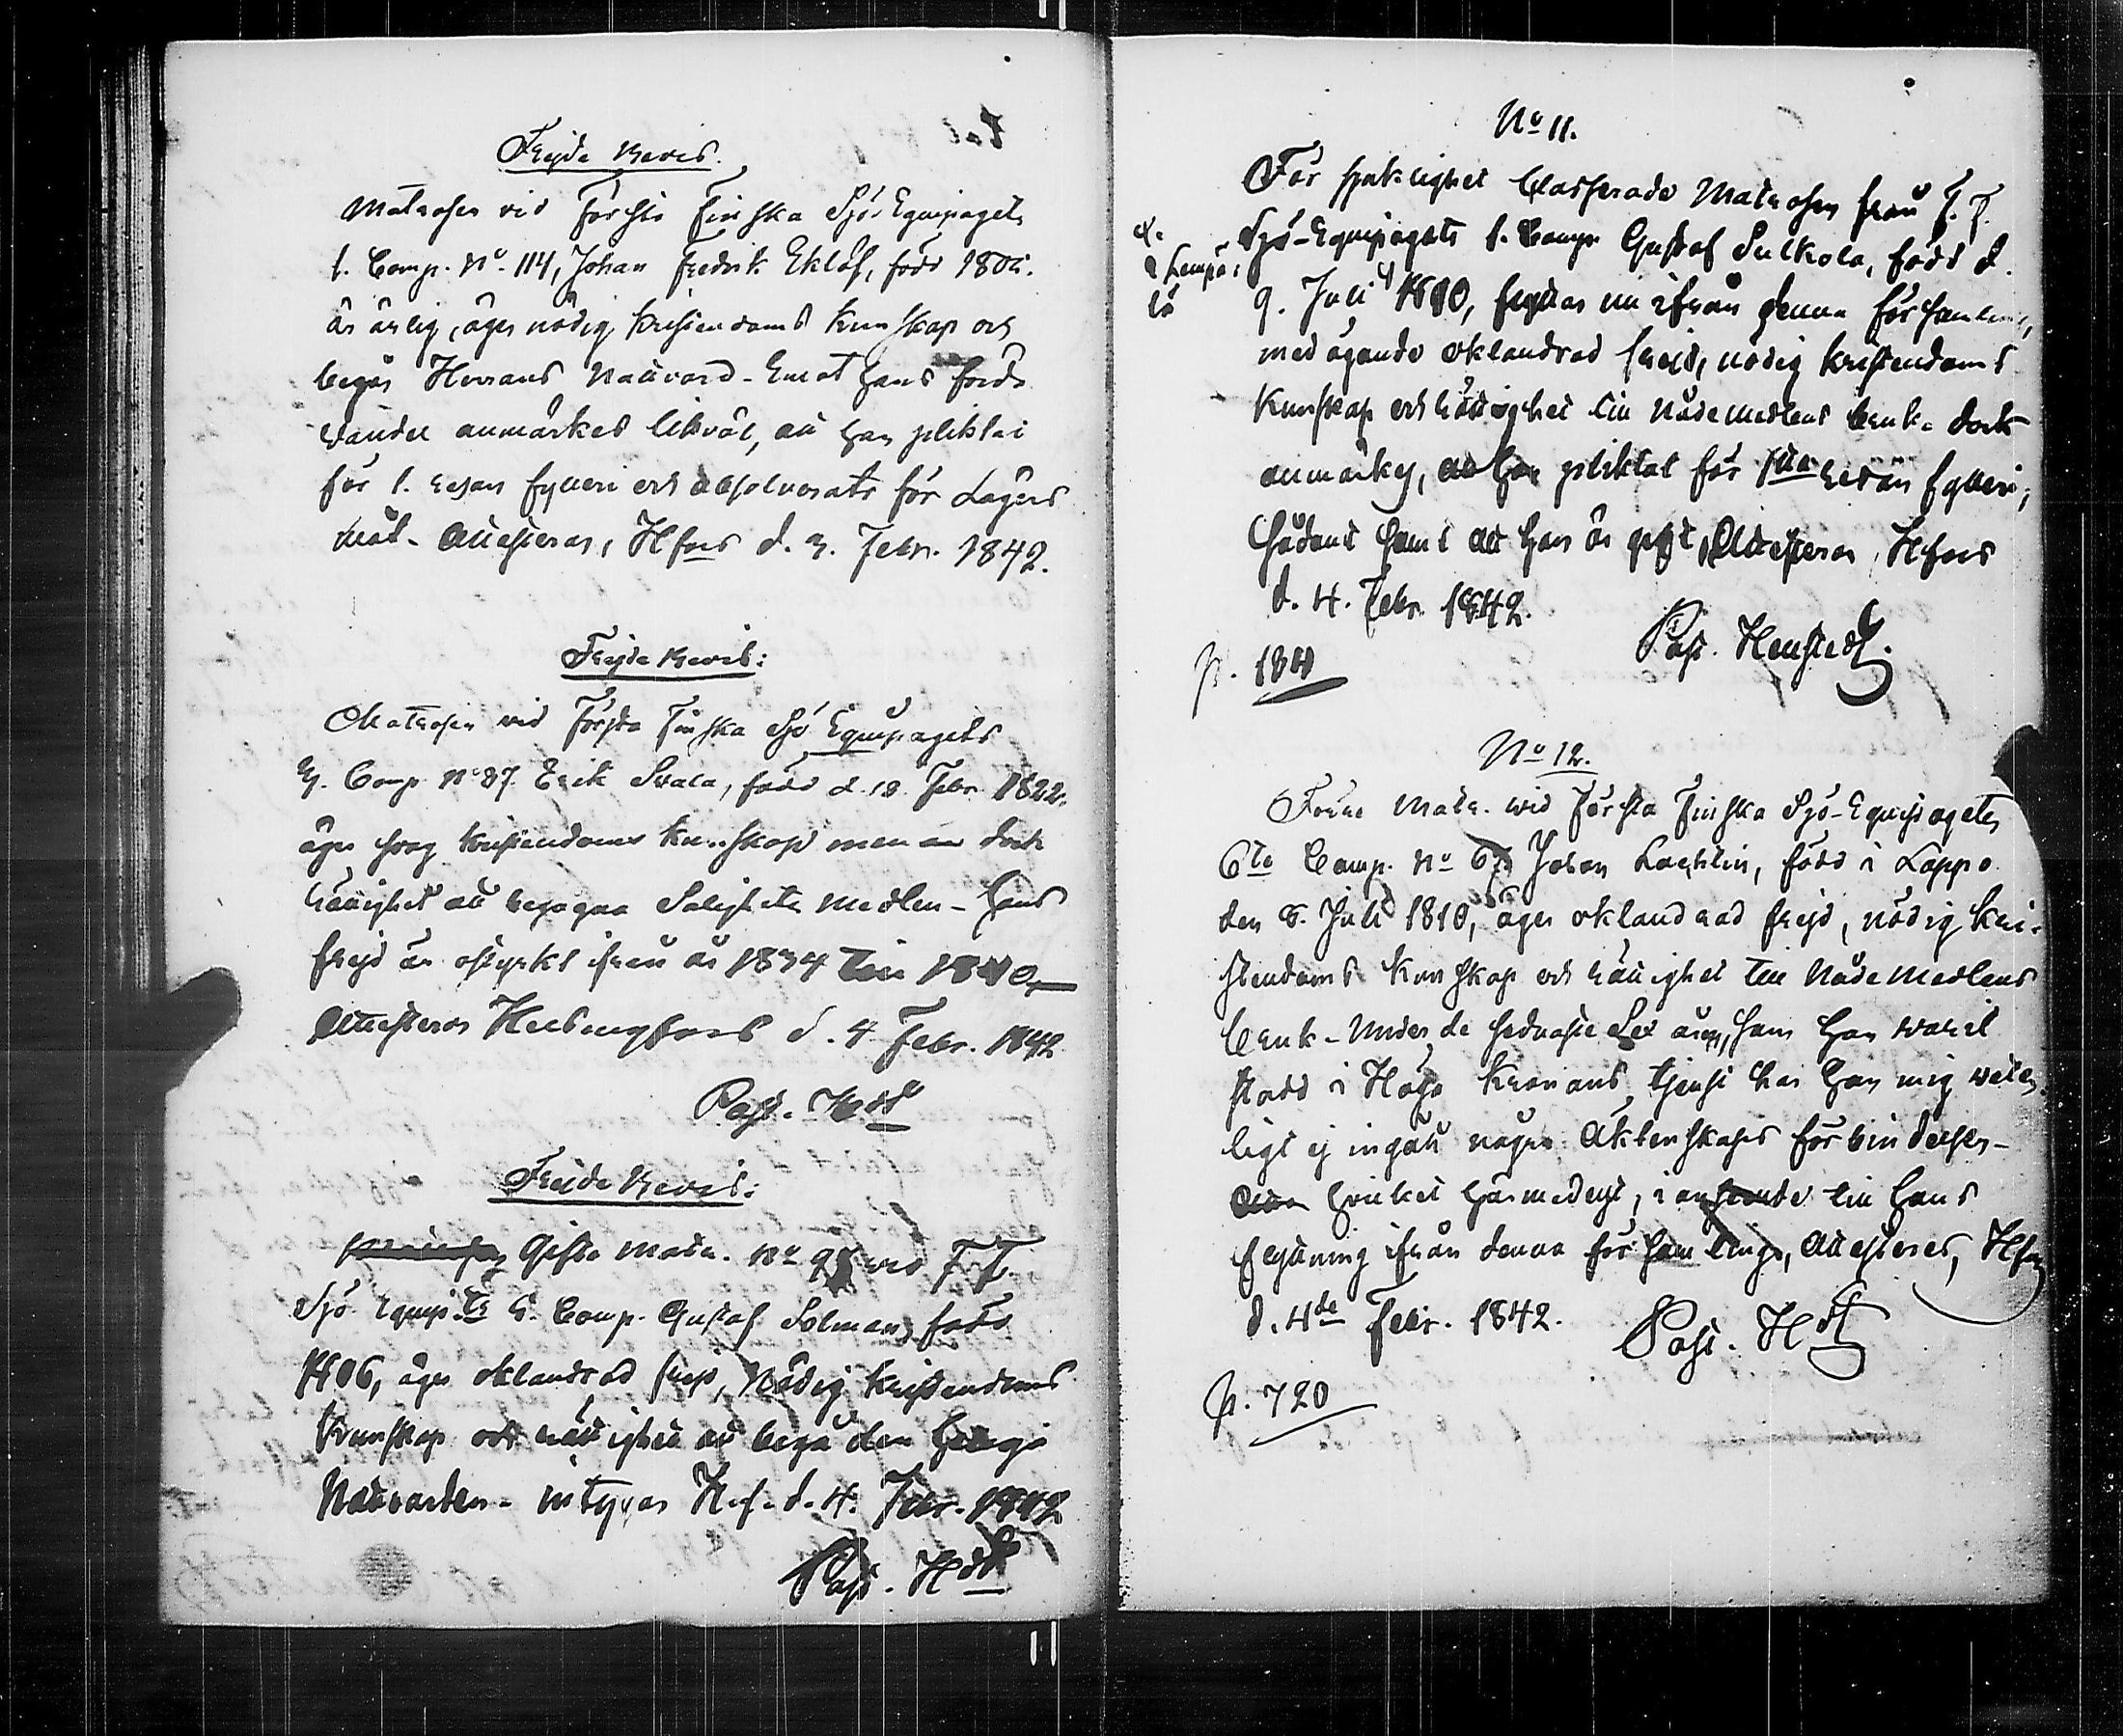 Frejde bevis.
Matrosen vid Första Finska Sjö-Equipagets
1. Comp. No. 114, Johan Fredrik Eklöf, född 180
är ärlig, äger nödig kristendoms kunskap och
begår Herrans Nattvard. Emot hans förde
vandel anmärkes likväl, att han pliktat
för 1. resan fylleri och absolverats för Lägers
mål. Attesteras, Hfors d. 3. Febr. 1842.
Frejde bevis:
Matrosen vid Första Finska Sjö Equipagets
3. Comp No 37 Erik Svala, född d. 18. Febr. 1822,
äger svag kristendoms kunskap men dock
rättighet att begagna Salighets medlen - Hans
frejd är ostyrkt ifrån år 1834 till 1840
Attesteras Helsingfors d. 4 Febr. 1842
Past. Hdt
Frejde bevis:
Gifte Matr. No 9 vid F. F.
Sjö Equip.ts 6. Comp. Gustaf Solman, född
1806, äger oklandrad frejd, Nödig kristendoms
kunskap och rättighet att begå den Heliga
Nattvarden - intygas H.f. d. 4. Febr. 1842
Past. Hdt
No 11.
För sjuklighet Casserade Matrosen från F. F.
Sjö-Equipagets 1. Comp. Gustaf Sulkola, född d.
9. Juli 1810, flyttar nu ifrån denna församling,
i Kempe
lä
med ägande oklandrad frejd, nödig kristendoms
kunskap och rättighet till Nådemedlens bruk. dock
anmärkes, att han pliktat för 1sta resan fylleri;
Sådant samt att han är gift, Attesteras, Hfors
d. 4. Febr. 1842.
Past. Henstedt.
p. 184
No 12.
Förre Matr. wid Första Finska Sjö-Equipagets
6te Comp. No 6 Johan Lachlin, född i Lappo
den 6. Juli 1810, äger oklandrad frejd, nödig kri-
stendoms kunskap och rättighet till Nåde Medlens
bruk. Under de sednaste Sex åren, som han warit
stadd i Höga Kronans tjenst har han mig weter-
ligt ej ingått några Äktenskaps förbindelser -
hvilket härmedelst, i anseende till hans
flyttning ifrån denna församling, Attesteras, Hfors
d. 4de Febr. 1842.
Past. Hdt
p. 720